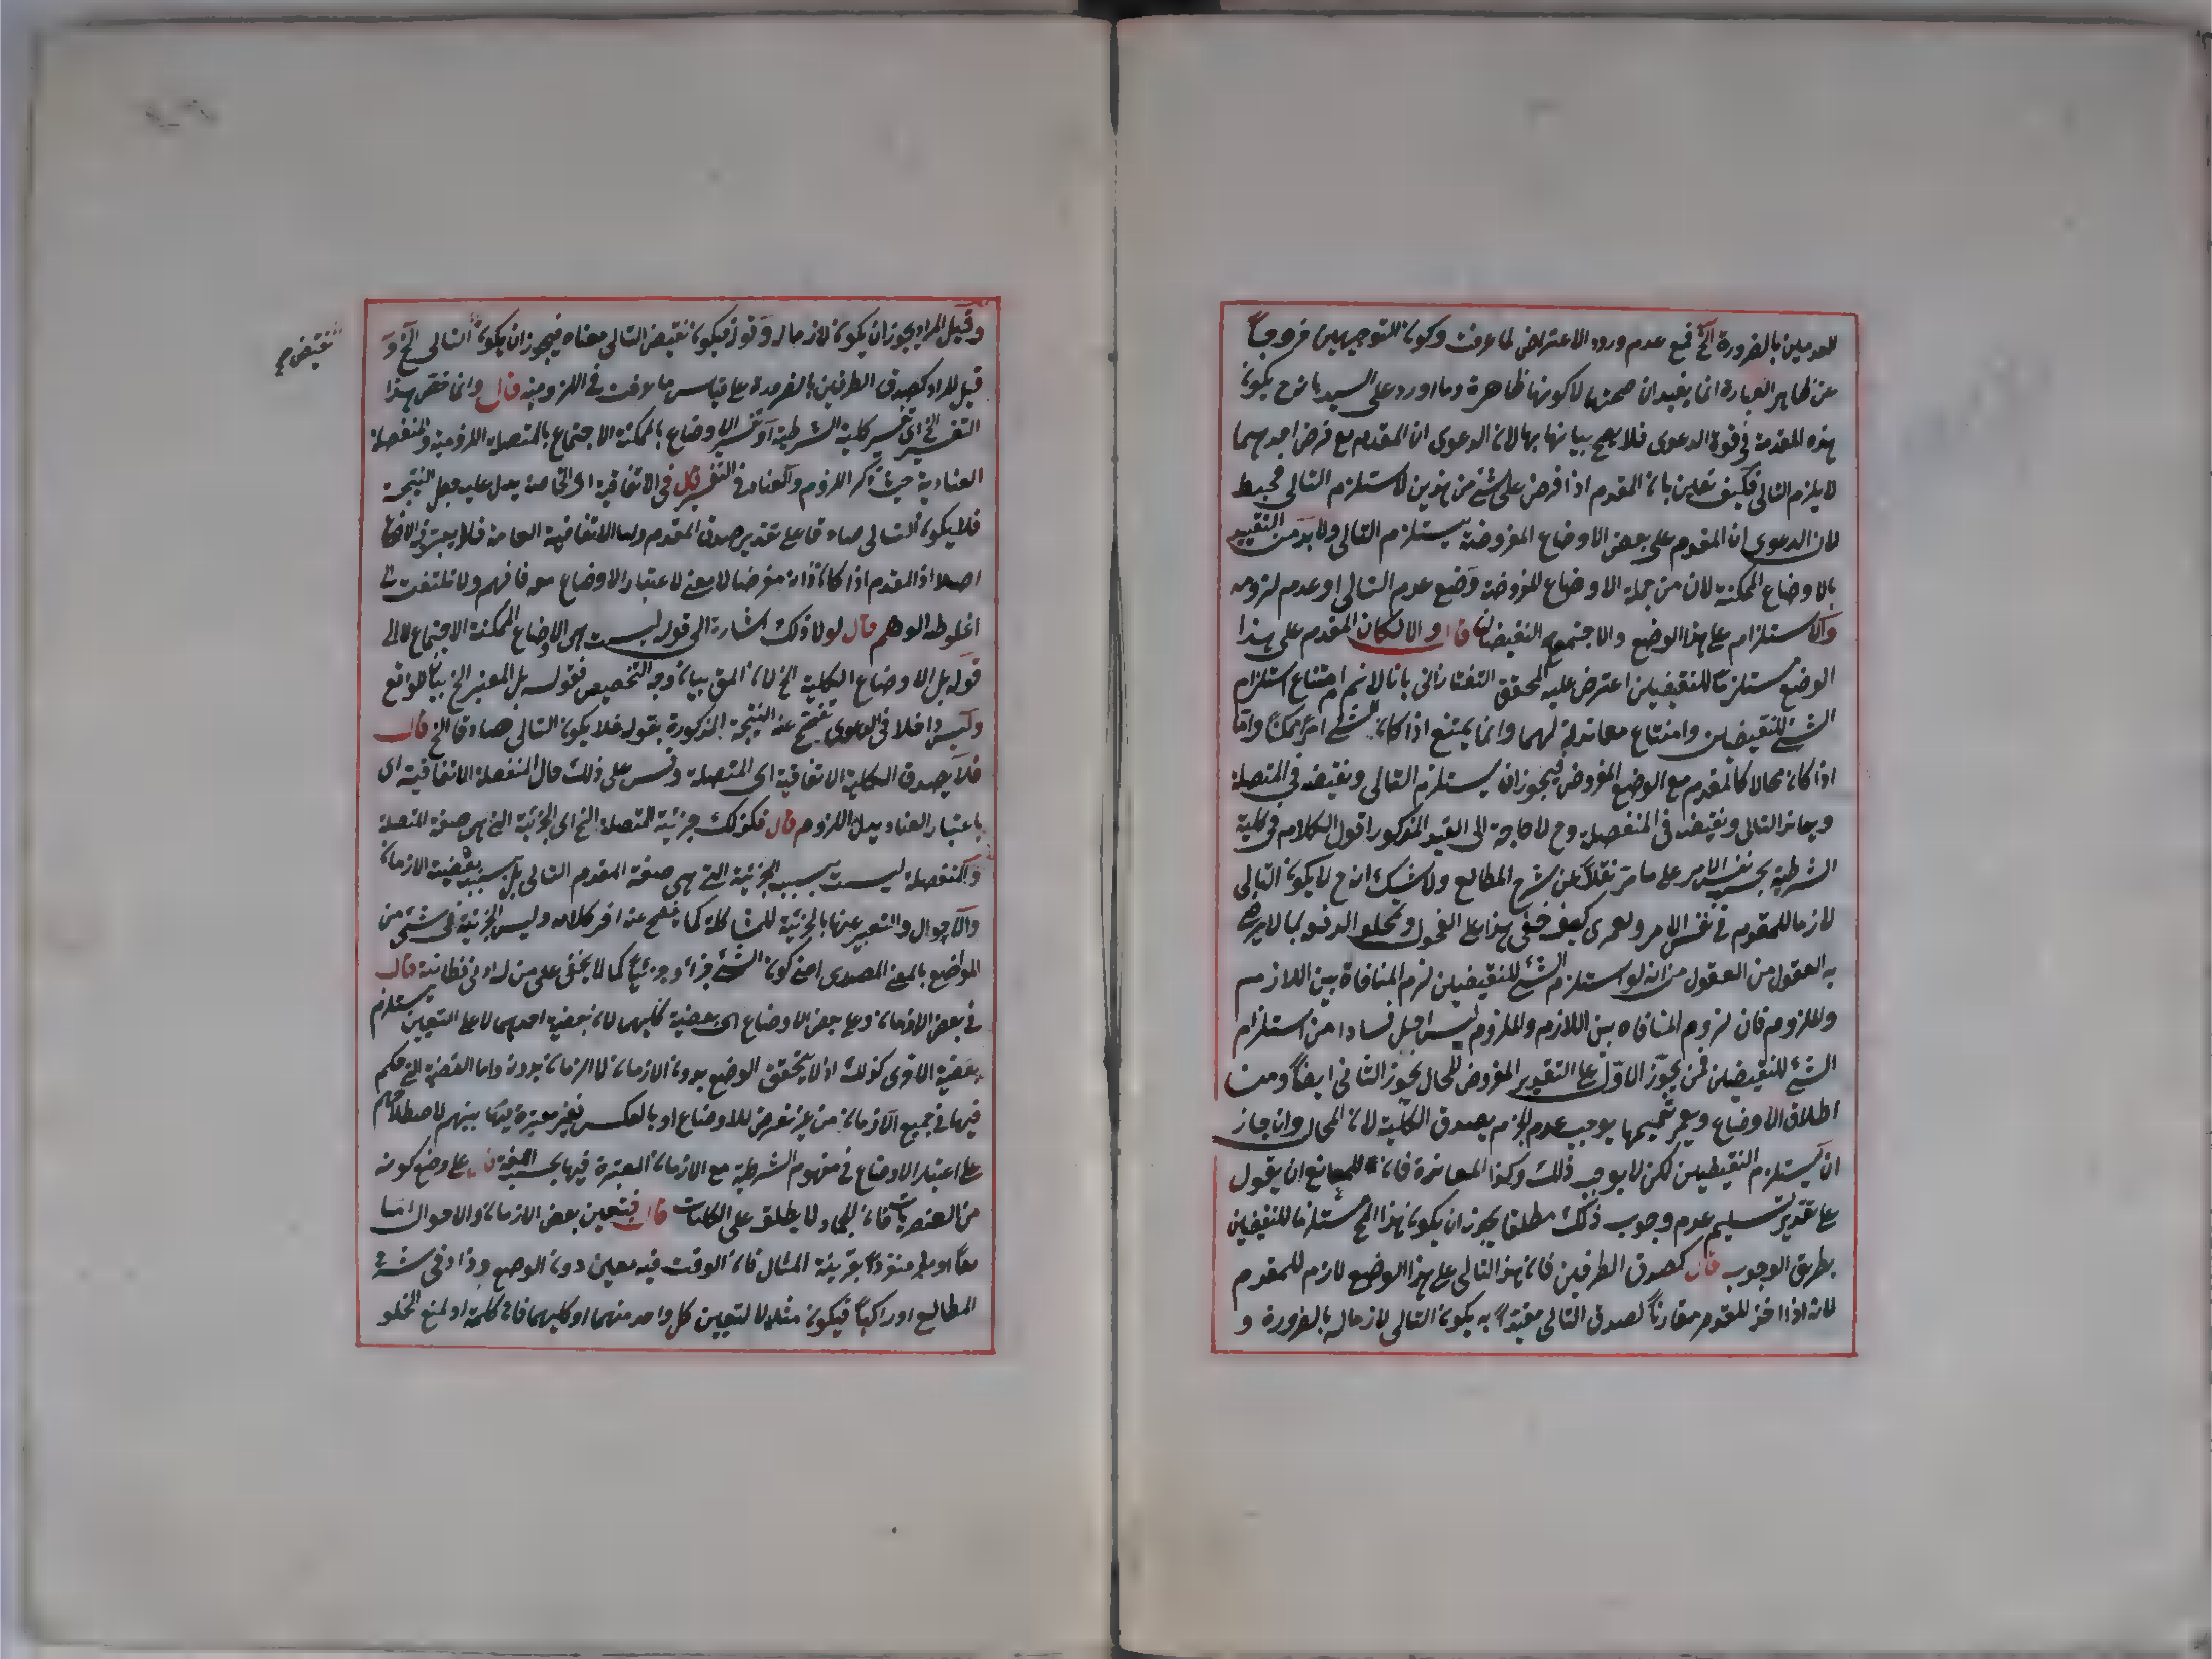 للعدمين بالضرورة الخ فمع عدم ورود الاعتراض لما عرفت وكون التوجيهين خروجاً
عن ظاهر العبارة انما يفيدان صحتها لا كونها ظاهرة وما اورد على السيد بانه ح يكون
هذه المقدمة في قوة الدعوى فلا يصح بيانها بها لان الدعوى ان المقدم مع فرض احدهما
لا يلزم التالى فكيف تعلين بان المقدم اذا فرض على شئ من هذين لا ستلزم التالى
لان الدعوى ان المقدم على بعض الاوضاع المفروضة يستلزم التالى ولا بد من التقييد
بالاوضاع الممكنة لان من جملة الاوضاع المفروضة وضع عدم التالى او عدم لزومه
والاستلزام على هذا الوضع والا اجتمع النقيضان قال والا لكان المقدم على هذا
الوضع مستلزما للنقيضين اعترض عليه المحقق التفتازانى بانا لا نم امتناع استلزام
الشئ للنقيضين وامتناع معاندته لهما وانما يمتنع اذا كان الشئ امراً ممكناً واما
اذا كان محالا كالمقدم مع الوضع المفروض فيجوز ان يستلزم التالى ونقيضه فى المتصلة
ويعاند التالى ونقيضه فى المنفصلة وح لا حاجة الى القيد المذكور اقول الكلام فى كلية
الشرطية بحسب نفس الامر على ما مر نقلاً عن شرح المطالع ولا شك انه ح لا يكون التالى
لازما للمقدم فى نفس الامر ولعمرى كيف خفى هذا على الفحول وتمحلوا لدفعه بما لا يرضى
به العقول من انه لو استلزم الشئ للنقيضين لزم المنافاة بين اللازم
والملزوم فان لزوم المنافاة بين اللازم والملزوم ليس اجل فسادا من استلزام
الشئ للنقيضين فمن يجوّز الاوّل على التقدير المفروض المحال يجوز الثانى ايضاً ومن
اطلاق الاوضاع وتعميمها يوجب عدم الجزم بصدق الكلية لان المحال وان جاز
ان يستلزم النقيضين لكن لا يوجب ذلك وكذا المعاندة فان للمانع ان يقول
على تقدير تسليم عدم وجوب ذلك مطلقا يجوز ان يكون هذا المح مستلزما للنقيضين
بطريق الوجوب قال كصدق الطرفين فان هذا التالى على هذا الوضع لازم للمقدم
لانه اذا اخذ المقدم مقارناً لصدق التالى مقيداً به يكون التالى لازما له بالضرورة و
وقيل المراد يجوز ان يكون لازما له وقوله فيكون نقيض التالى معناه فيجوز ان يكون التالى الخ و
نقيض صح
قيل المراد كصدق الطرفين بالضرورة على قياس ما عرفت فى اللزومية قال وانما خص هذا
التفسير الخ اى تفسير كلية الشرطية او تفسير الاوضاع بالممكنة الاجتماع بالمتصلة اللزومية والمنفصلة
العنادية حيث ذكر اللزوم والعناد فى التفسير قال فى الاتفاقية اى الخاصة يدل عليه جعل النتيجة
فلا يكون التالى صادقا على تقدير صدق المقدم واما الاتفاقية العامة فلا يعتبر فيه
اصلا اذ المقدم اذا كان ذاته مفرضا لا معنى لاعتبار الاوضاع معه فافهم ولا تلتفت الى
اغلوطة الوهم قال لولا ذلك اشارة الى قوله ليست هى الاوضاع الممكنة الاجتماع لا الى
قوله بل الاوضاع الكلية الخ لان المق بيان وجه التخصيص فقوله بل المعتبر الخ بيان للواقع
وليس داخلا فى الدعوى تفصح عنه النتيجة المذكورة بقوله فلا يكون التالى صادقا الخ قال
فلا يصدق الكلية الاتفاقية اى المتصلة وقس على ذلك حال المنفصلة الاتفاقية اى
باعتبار العناد بدل اللزوم قال فكذلك جزئية المتصلة الخ اى الجزئية التى هى صفة المتصلة
والمنفصلة ليست بسبب الجزئية التى هى صفة المقدم التالى بل بسبب بعضية الازمان
والاحوال والتعبير عنها بالجزئية للمشاكلة كما يفصح عنه اخر كلامه وليس الجزئية فى شئ من
المواضع بالمعنى المصدرى اعنى كون الشئ جزأ وجزئياً كما لا يخفى على من له ادنى فطانة قال
فى بعض الازمان وعلى بعض الاوضاع اى بعضية كليهما لان بعضية احدهما لا على التعيين يستلزم
بعضية الاخرى كذلك اذ لا يتحقق الوضع بدون الازمان ولا الزمان بدونه واما القضية التى حكم
فيها فى جميع الازمان من غير تعرض للاوضاع او بالعكس فغير معتبرة فيما بينهم لاصطلاحهم
على اعتبار الاوضاع فى مفهوم الشرطية مع الازمان المعتبرة فيها بحسب اللغة قال على وضع كونه
من العنصريات فان الجماد لا يطلق على الفلكيات قال فتعيين بعض الازمان والاحوال اما
معاً او منفرداً بقرينة المثال فان الوقت فيه معين دون الوضع وزاد فى شرح
المطالع او راكباً فيكون مثالا لتعيين كل واحد منهما او كليهما فان كلمة او لمنع الخلو